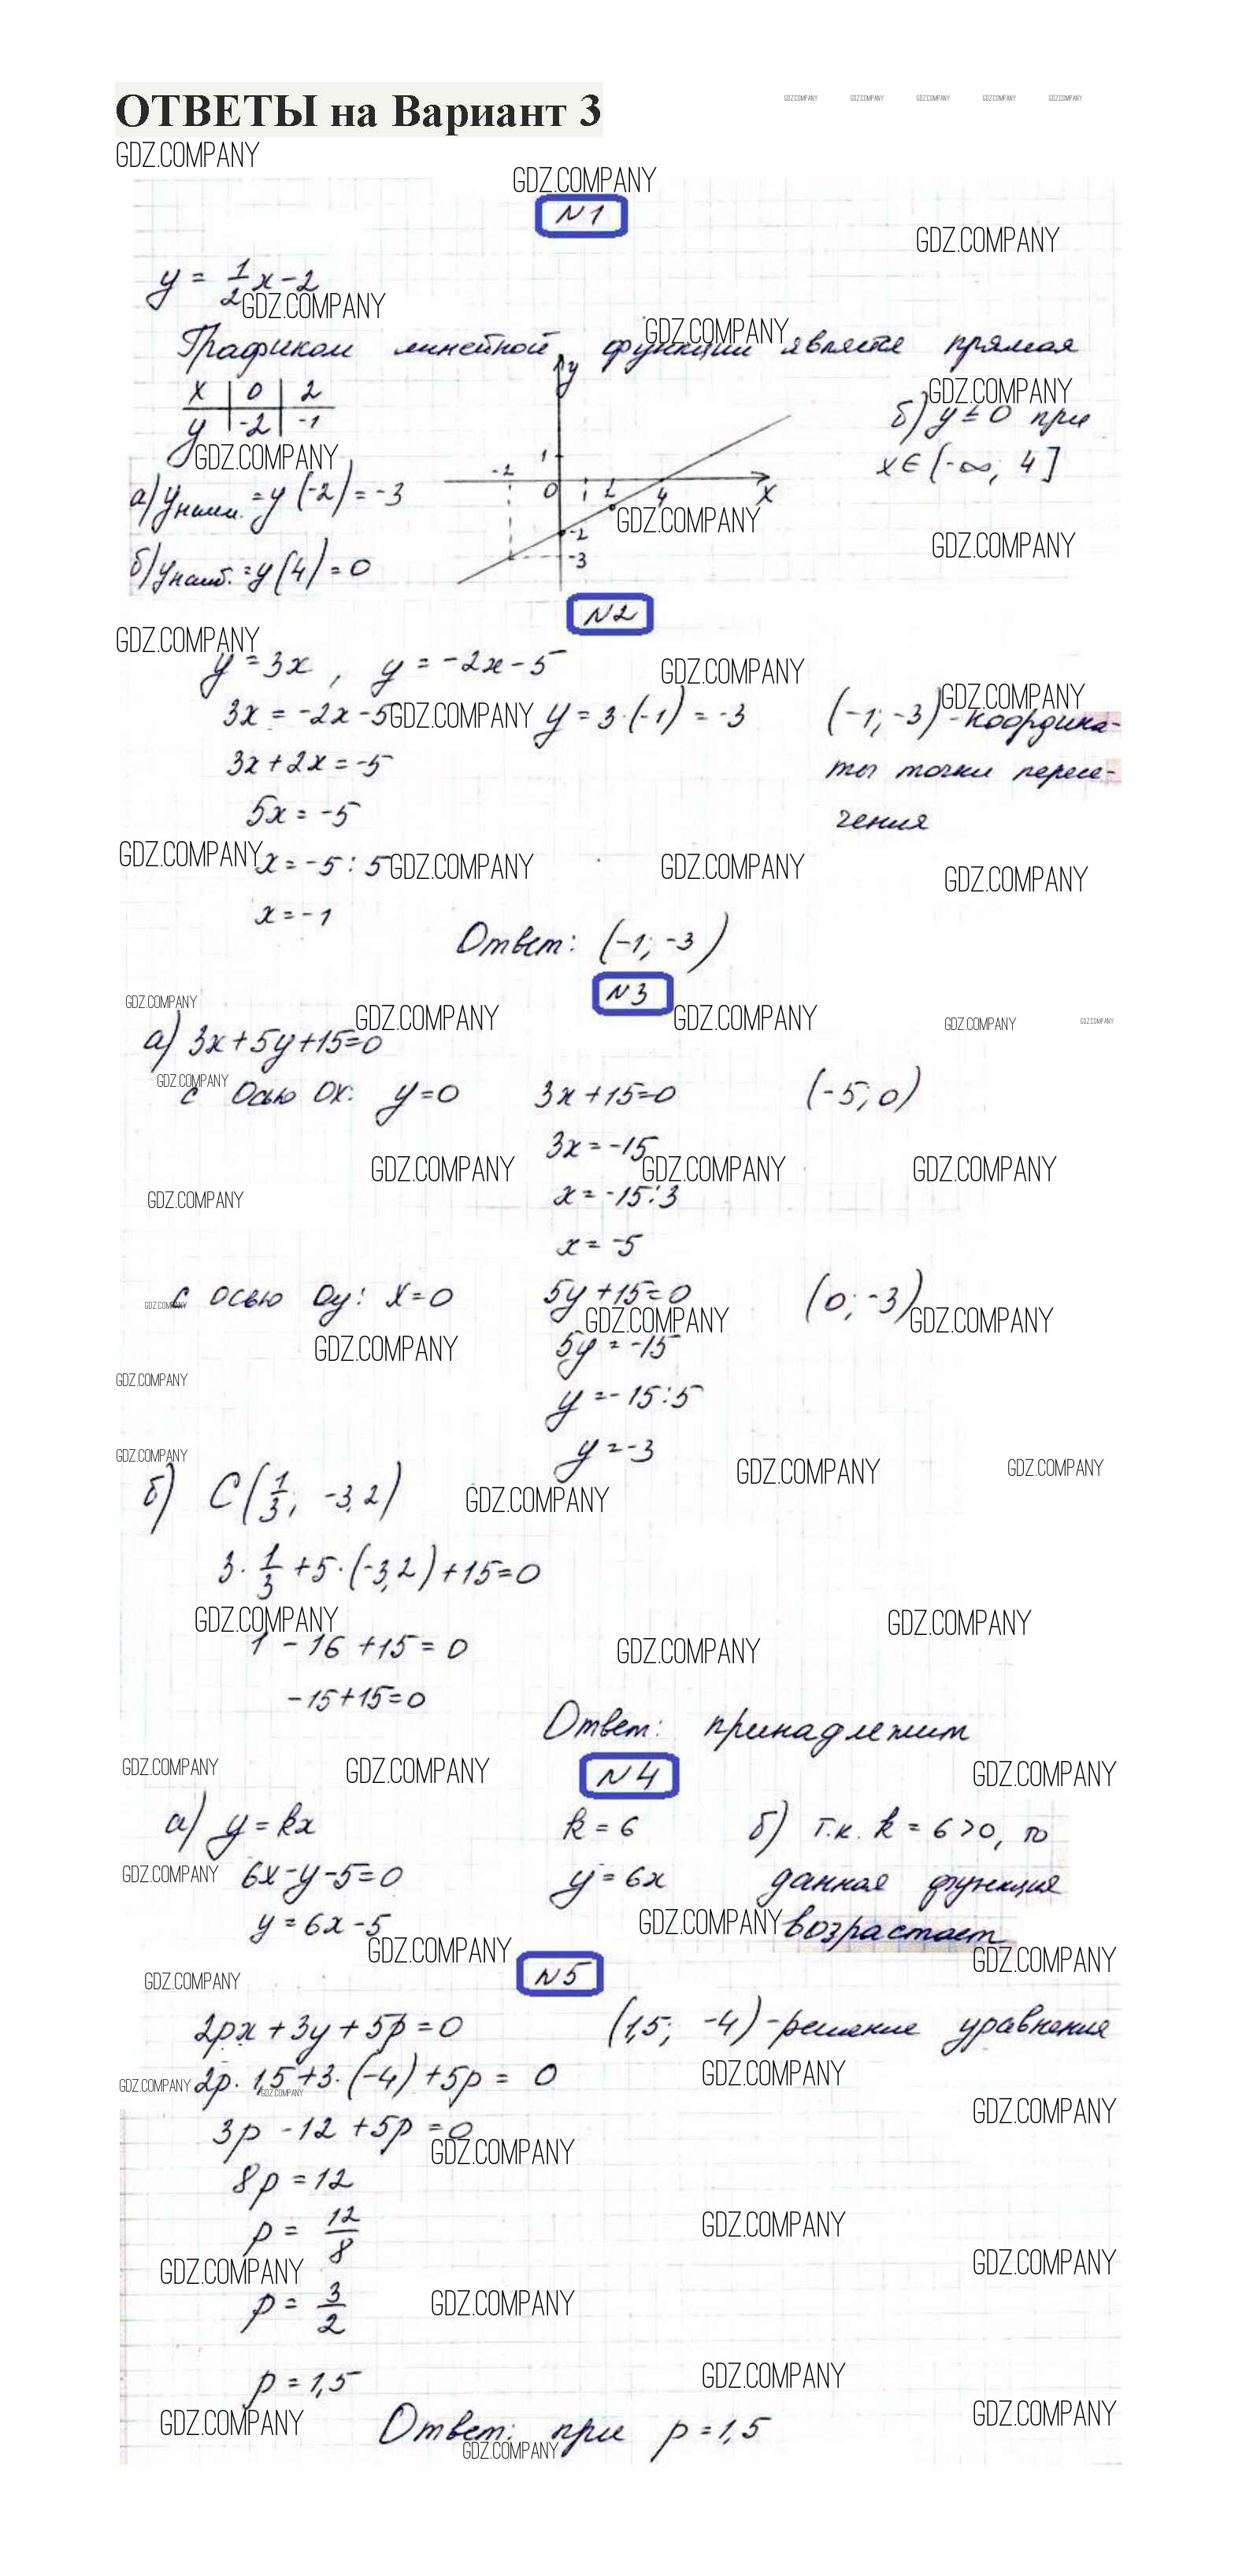 ОТВЕТЫ на Вариант 3
GDZ.COMPANY GDZ.COMPANY GDZ.COMPANY GDZ.COMPANY GDZ.COMPANY
GDZ.COMPANY
GDZ.COMPANY
N1
GDZ.COMPANY
y = 1/2 x - 2
GDZ.COMPANY
GDZ.COMPANY
Графиком линейной функции является прямая
x 0 2
y -2 -1
GDZ.COMPANY
б) y ≤ 0 при
x ∈ (-∞; 4]
GDZ.COMPANY
а) yнаим. = y(-2) = -3
y
1
-2 0 1 2 4 x
-2
-3
GDZ.COMPANY
GDZ.COMPANY
б) yнаиб. = y(4) = 0
N2
GDZ.COMPANY
y = 3x, y = -2x - 5
GDZ.COMPANY
GDZ.COMPANY
3x = -2x - 5 GDZ.COMPANY y = 3·(-1) = -3 (-1; -3) - координа-
3x + 2x = -5 ты точки пересе-
5x = -5 чения
GDZ.COMPANY x = -5 : 5 GDZ.COMPANY GDZ.COMPANY GDZ.COMPANY
x = -1
Ответ: (-1; -3)
N3
GDZ.COMPANY GDZ.COMPANY GDZ.COMPANY GDZ.COMPANY GDZ.COMPANY
а) 3x + 5y + 15 = 0
GDZ.COMPANY
с осью Ox: y = 0 3x + 15 = 0 (-5; 0)
3x = -15
GDZ.COMPANY GDZ.COMPANY GDZ.COMPANY
GDZ.COMPANY x = -15 : 3
x = -5
GDZ.COMPANY с осью Oy: x = 0 5y + 15 = 0 (0; -3)
GDZ.COMPANY GDZ.COMPANY
GDZ.COMPANY 5y = -15
GDZ.COMPANY
y = -15 : 5
GDZ.COMPANY y = -3
GDZ.COMPANY GDZ.COMPANY
б) C(1/3; -3,2) GDZ.COMPANY
3·1/3 + 5·(-3,2) + 15 = 0
GDZ.COMPANY GDZ.COMPANY
1 - 16 + 15 = 0 GDZ.COMPANY
-15 + 15 = 0
Ответ: принадлежит
GDZ.COMPANY GDZ.COMPANY N4 GDZ.COMPANY
а) y = kx k = 6 б) т.к. k = 6 > 0, то
GDZ.COMPANY 6x - y - 5 = 0 y = 6x данная функция
y = 6x - 5 GDZ.COMPANY возрастает
GDZ.COMPANY GDZ.COMPANY
GDZ.COMPANY N5
2px + 3y + 5p = 0 (1,5; -4) - решение уравнения
GDZ.COMPANY 2p·1,5 + 3·(-4) + 5p = 0 GDZ.COMPANY
GDZ.COMPANY
GDZ.COMPANY
3p - 12 + 5p = 0
GDZ.COMPANY
8p = 12
p = 12/8 GDZ.COMPANY
GDZ.COMPANY GDZ.COMPANY
p = 3/2 GDZ.COMPANY
p = 1,5 GDZ.COMPANY
GDZ.COMPANY GDZ.COMPANY
Ответ: при p = 1,5
GDZ.COMPANY